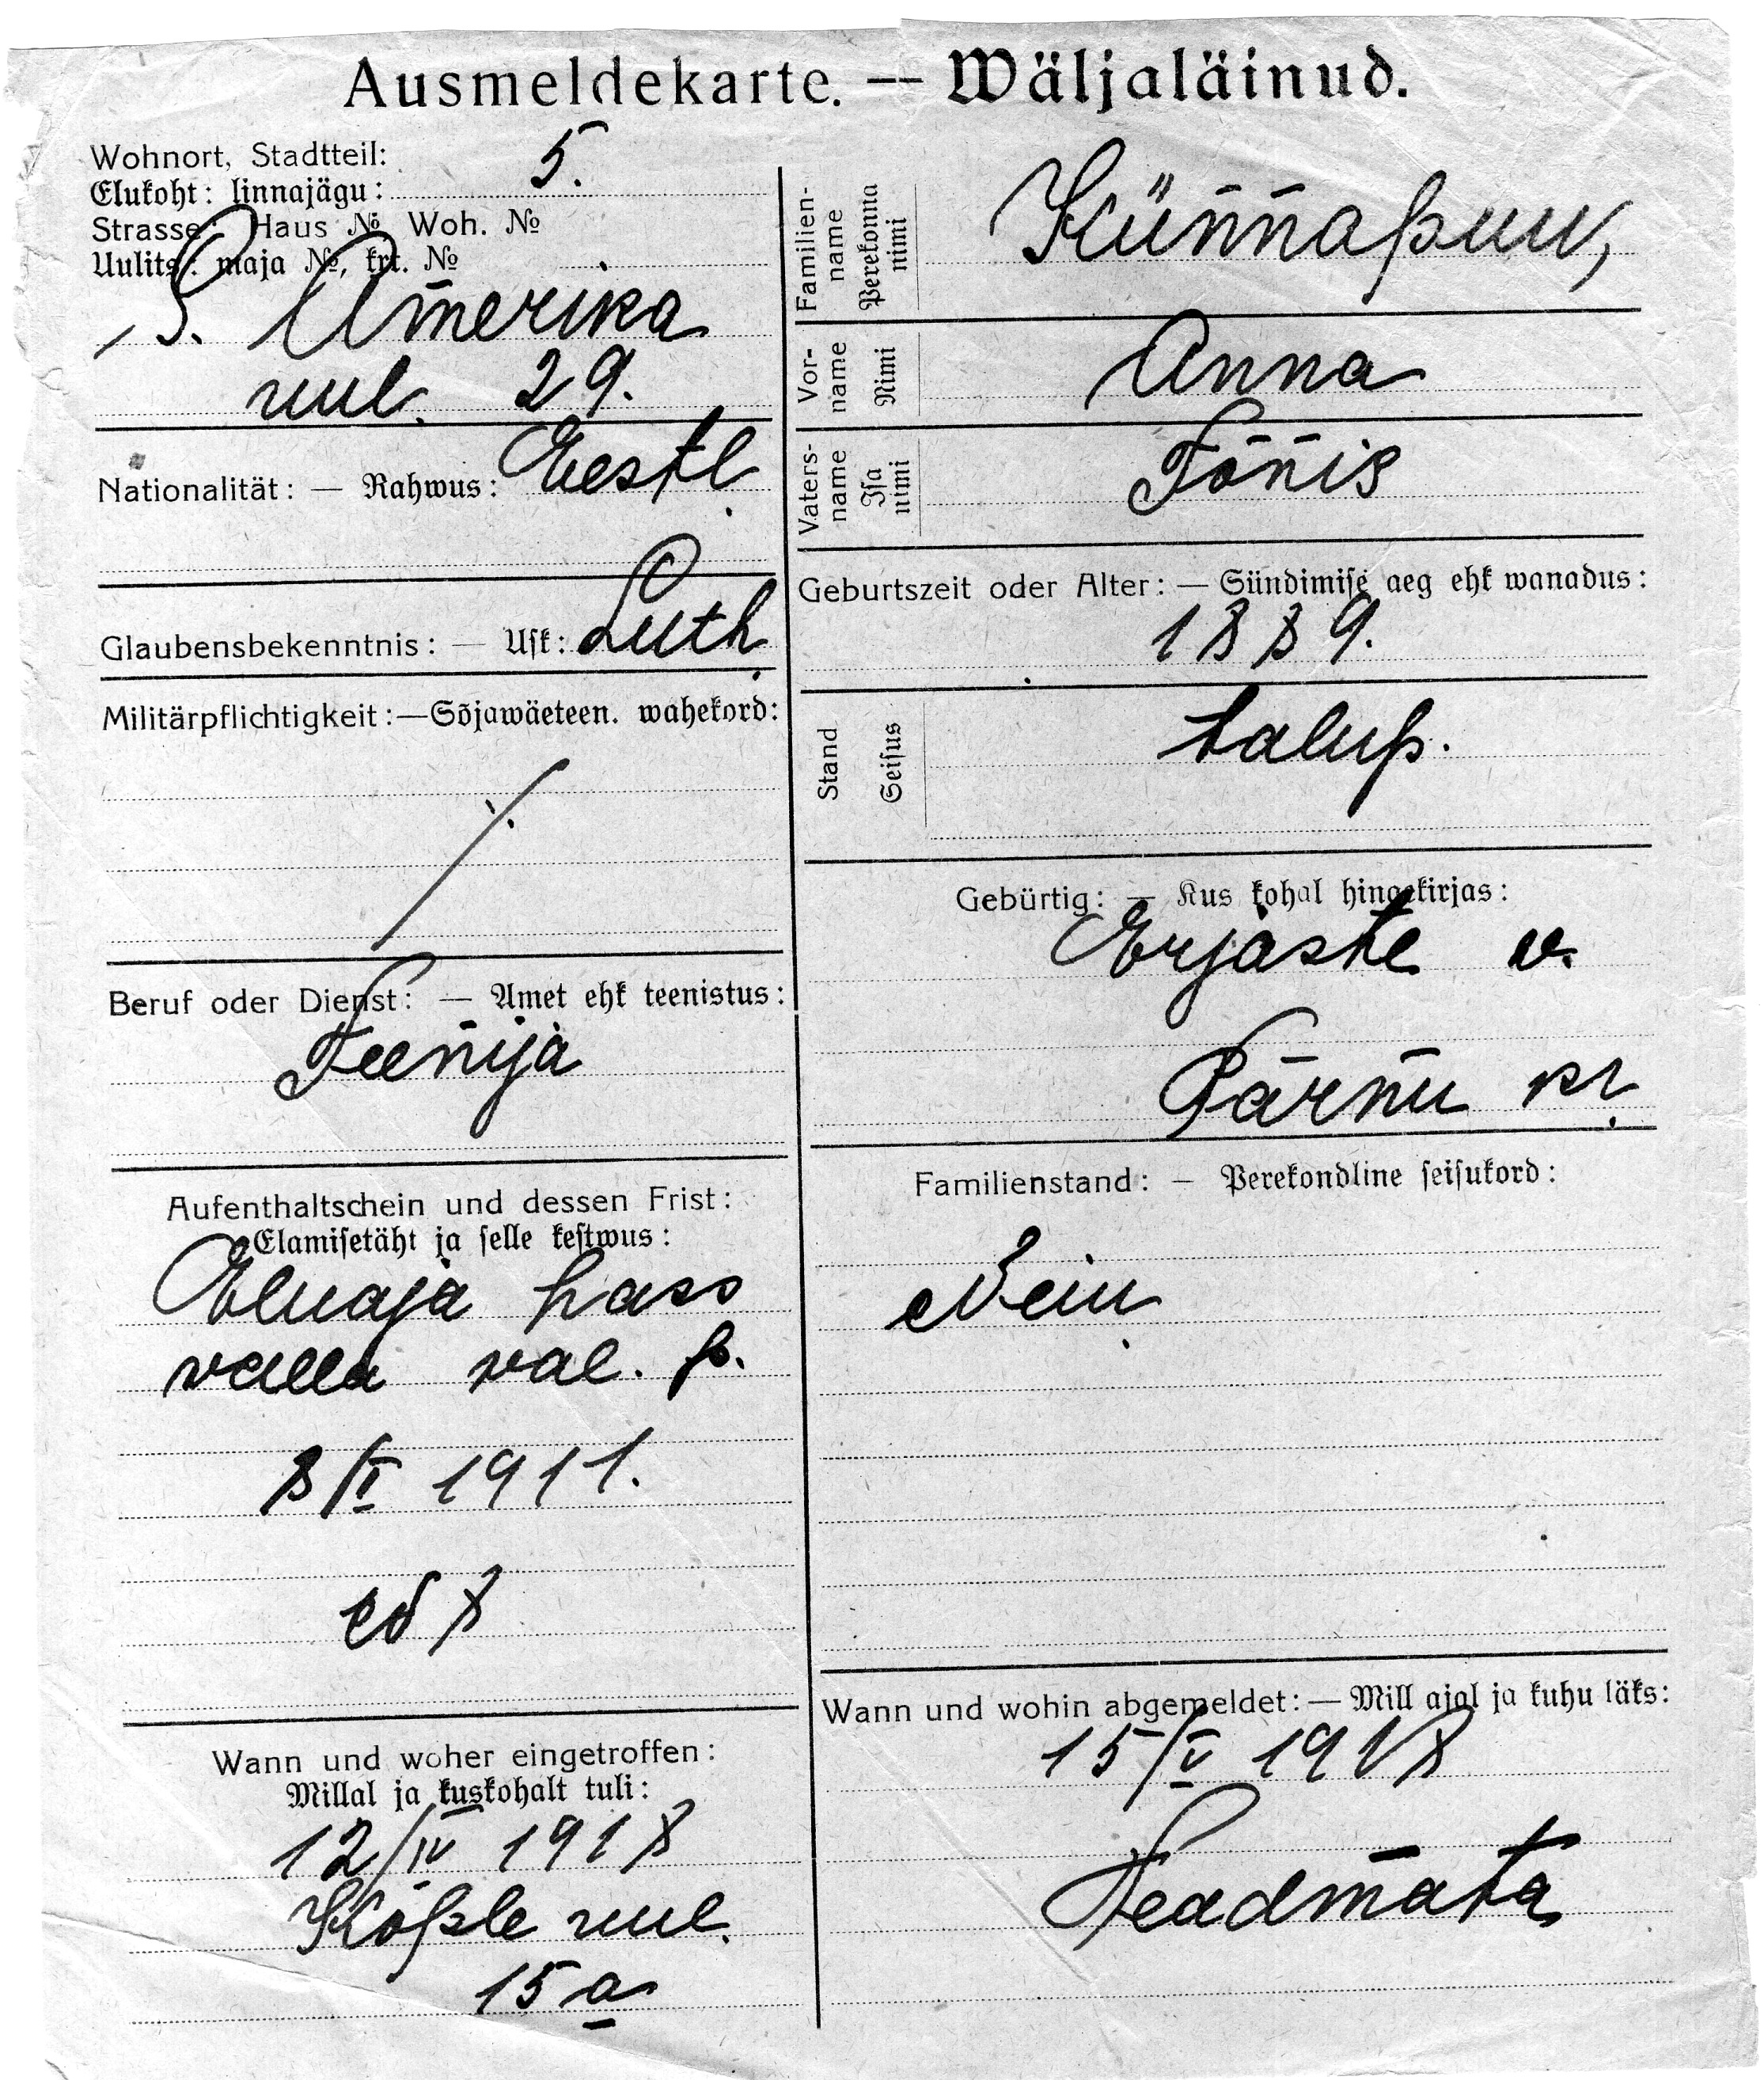 Ausmeldekarte. — Wäljaläinud.
Wohnort, Stadtteil:
Elukoht: linnajägu: 5.
Strasse: Haus № Woh. №
Uulits: maja №, krt. №
S. Amerika
uul. 29.
Nationalität: — Rahwus: Eestl.
Glaubensbekenntnis: — Usk: Luth.
Militärpflichtigkeit: — Sõjawäeteen. wahekord:
Beruf oder Dienst: — Amet ehk teenistus:
Teenija
Aufenthaltschein und dessen Frist:
Elamisetäht ja selle kestwus:
Eluaja pass
valla val. p.
8/I 1911.
Wann und woher eingetroffen:
Millal ja kuskohalt tuli:
12/IV 1918
Köple uul.
15 a
Familien-
name
Perekonna
nimi
Künnapuu,
Vor-
name
Nimi
Anna
Vaters-
name
Isa
nimi
Tõnis
Geburtszeit oder Alter: — Sündimise aeg ehk wanadus:
1889.
Stand
Seisus
talup.
Gebürtig: — Kus kohal hingekirjas:
Erjaste v.
Pärnu kr.
Familienstand: — Perekondline seisukord:
Neiu
Wann und wohin abgemeldet: — Mill ajal ja kuhu läks:
15/V 1918
Teadmata